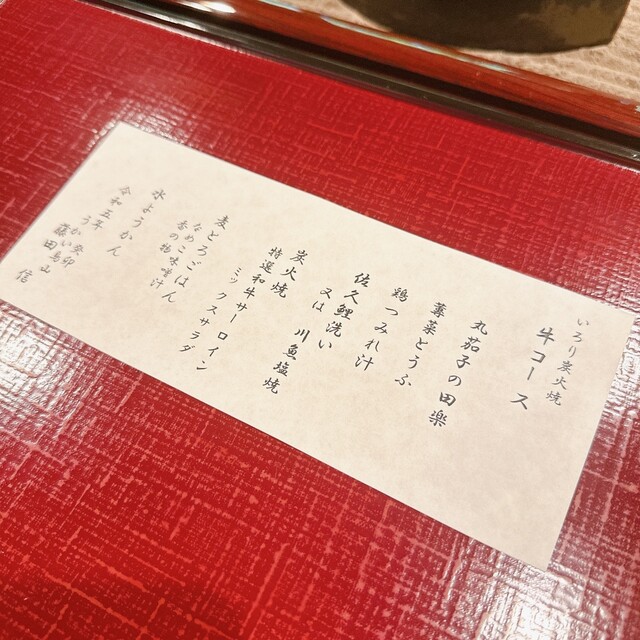 いろり炭火焼
牛コース
丸茄子の田楽
蓴菜とうふ
鶏つみれ汁
佐久鯉洗い
又は 川魚塩焼
炭火焼
特選和牛サーロイン
ミックスサラダ
麦とろごはん
なめこ味噌汁
香の物
水ようかん
令和五年 癸卯
うかい鳥山
藤田 信